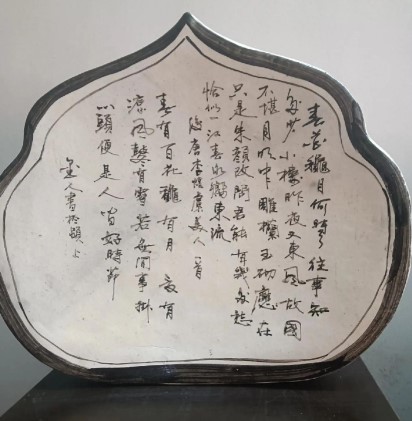 春花龝月何時了往事知
多少小樓昨夜又東風故國
不堪月明中雕欄玉砌應在
只是朱顏改問君能有幾多愁
恰似一江春水嚮東流
唐李煜虞美人一首
春有百花龝有月夏有
涼風鼕有雪若無閒事掛
心頭便是人好時節
人書於上